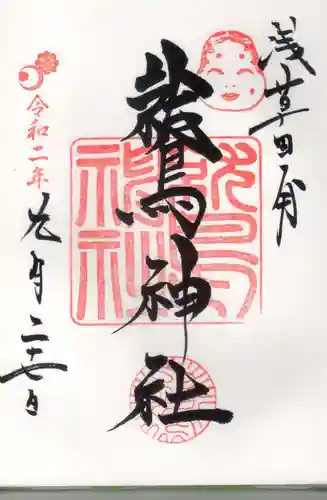 浅草田甫
鷲神社
令和二年
元月二十七日